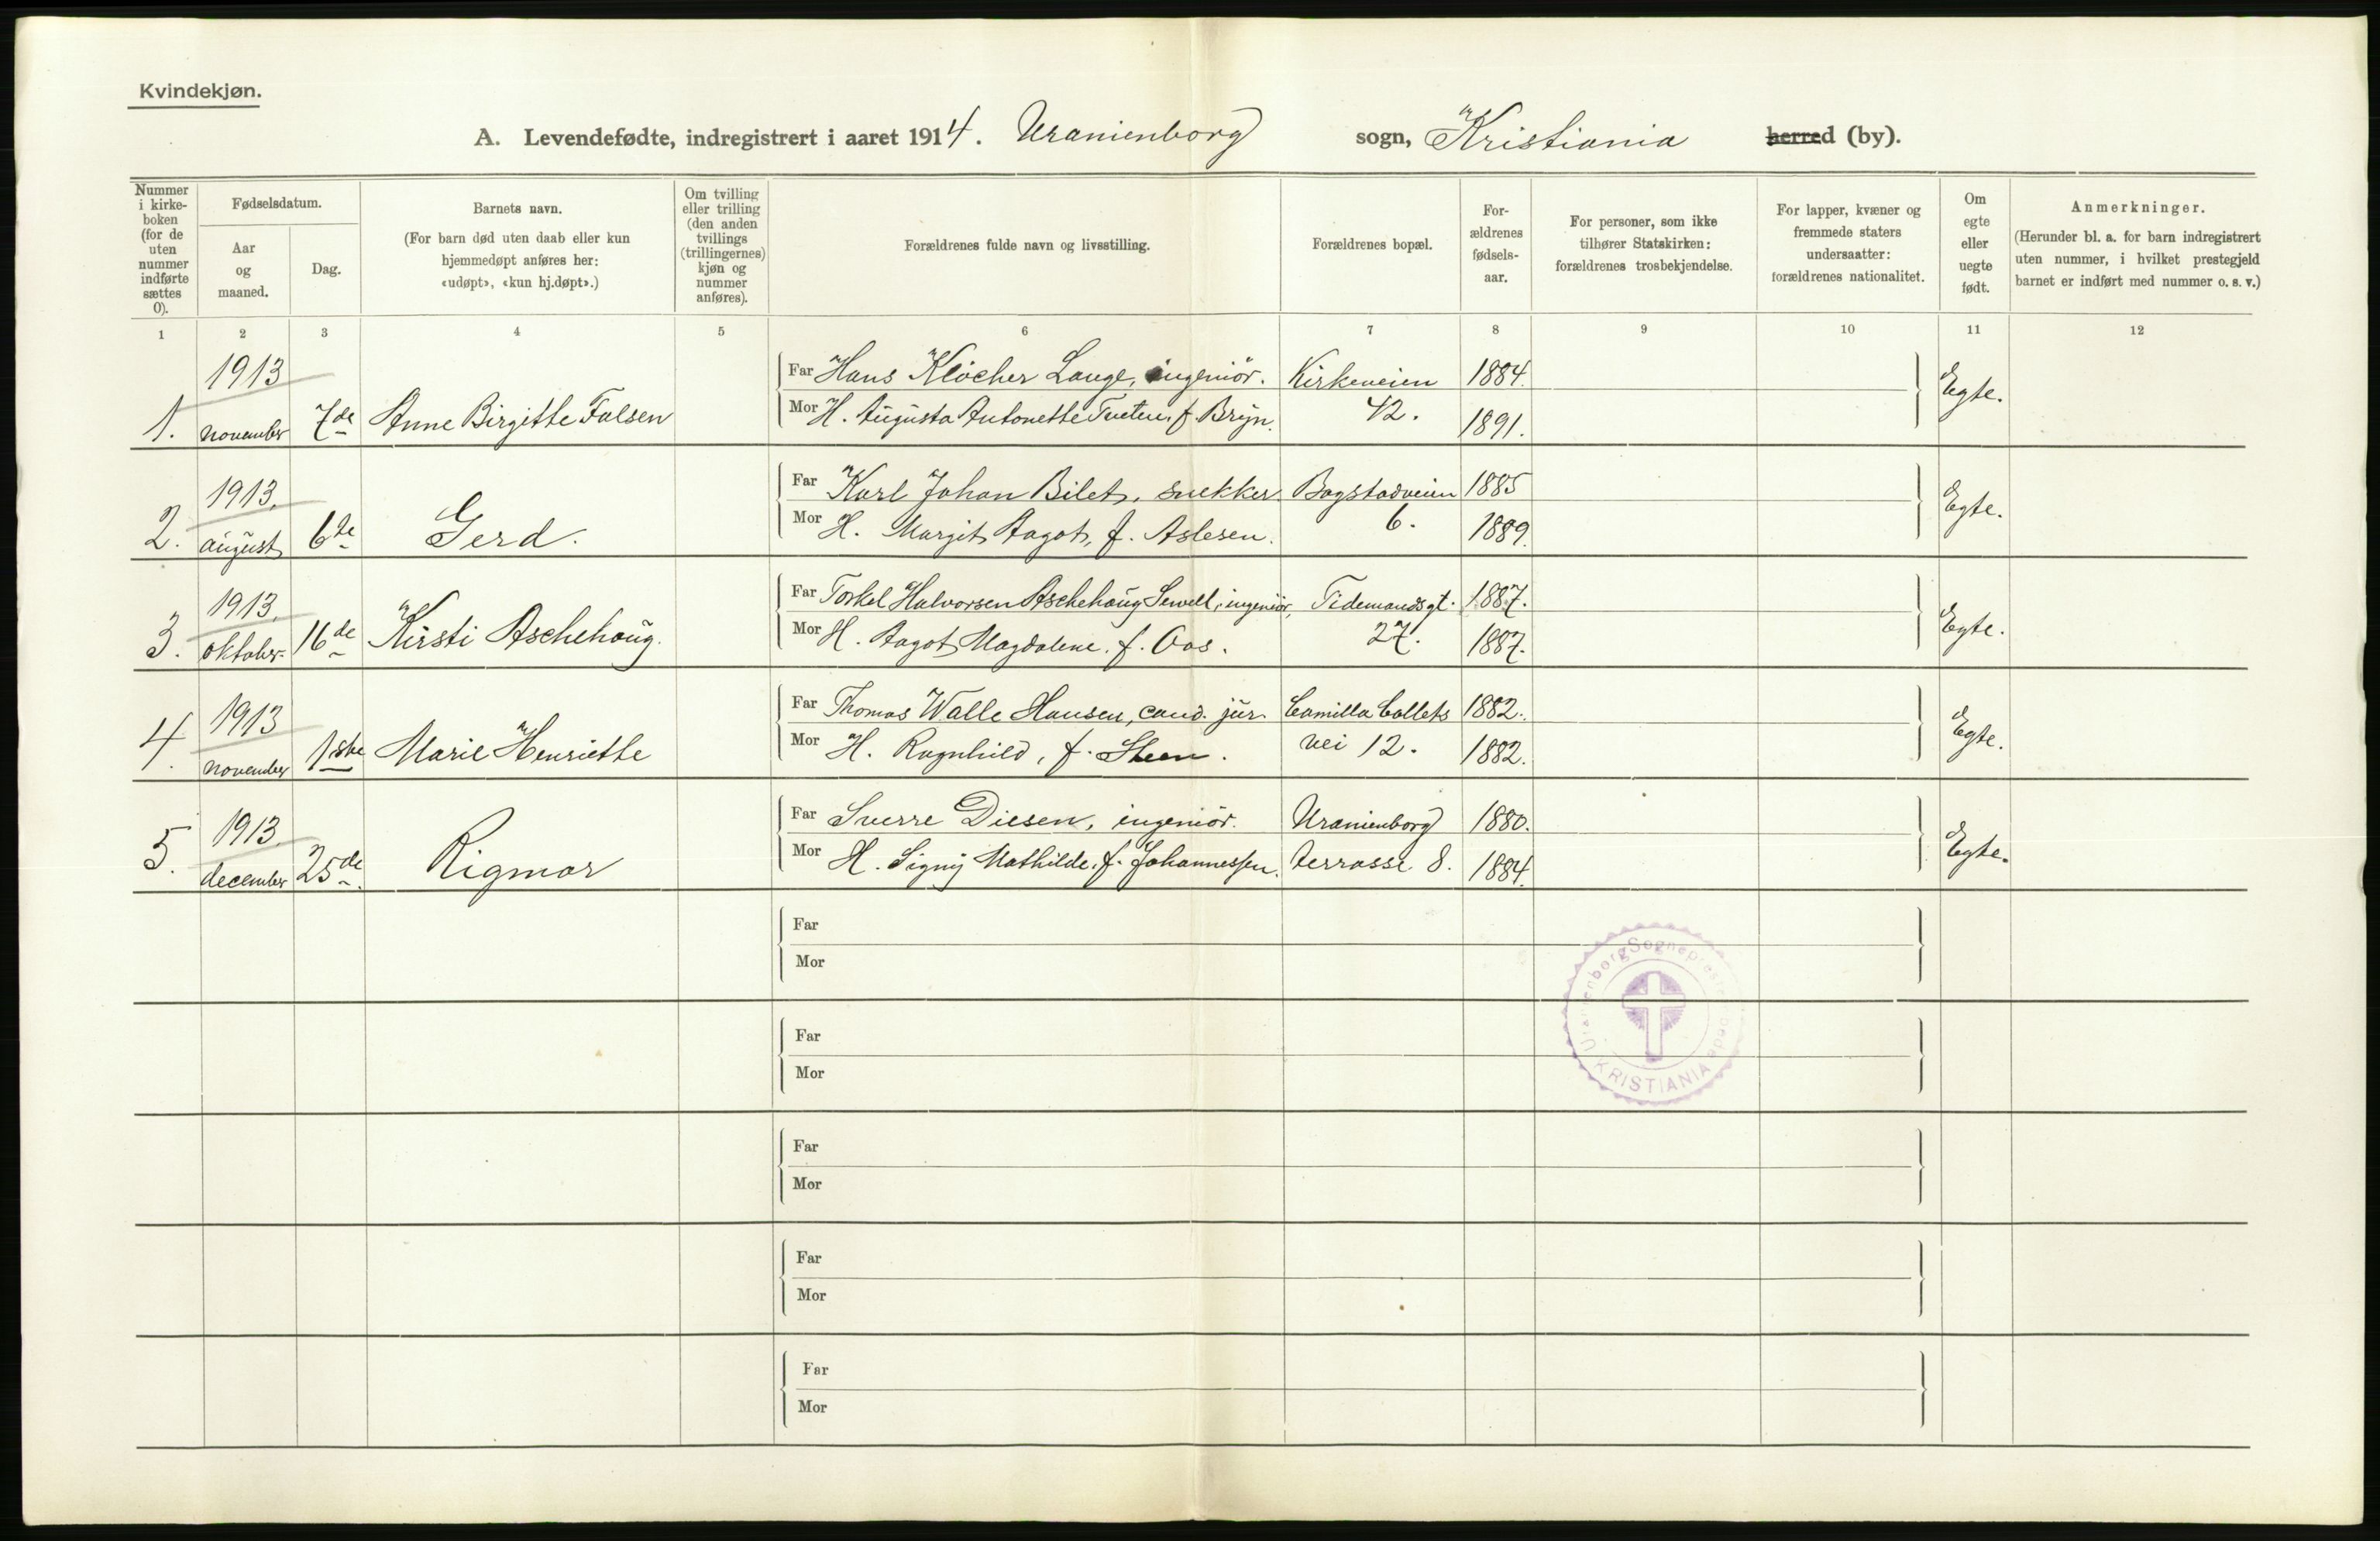 Kvindekjøn.
A. Levendefødte, indregistrert i aaret 1914. Uranienborg sogn, Kristiania herred (by).
Nummer
i kirke-
boken
(for de
uten
nummer
indførte
sættes
0).
Fødselsdatum.
Aar
og
maaned.
Dag.
Barnets navn.
(For barn død uten daab eller kun
hjemmedøpt anføres her:
«udøpt», «kun hj.døpt».)
Om tvilling
eller trilling
(den anden
tvillings
(trillingernes)
kjøn og
nummer
anføres).
Forældrenes fulde navn og livsstilling.
Forældrenes bopæl.
For-
ældrenes
fødsels-
aar.
For personer, som ikke
tilhører Statskirken:
forældrenes trosbekjendelse.
For lapper, kvæner og
fremmede staters
undersaatter:
forældrenes nationalitet.
Om
egte
eller
uegte
født.
Anmerkninger.
(Herunder bl. a. for barn indregistrert
uten nummer, i hvilket prestegjeld
barnet er indført med nummer o. s. v.)
1 2 3 4 5 6 7 8 9 10 11 12
1913 Far Hans Klöcher Lange, ingeniör. Kirkeveien 1884.
1. november 7de Anne Birgitte Falsen Mor H. Augusta Antonette Tveten, f. Bryn. 42. 1891. Egte.
1913. Far Karl Johan Bilet, snekker. Bogstadveien 1885
2. august 6te Gerd. Mor H. Margit Aagot, f. Aslesen. 6. 1889. Egte.
1913. Far Torkel Halvorsen Aschehoug Sewell, ingeniör, Tidemandsgt. 1887.
3. oktober. 16de Kirsti Aschehoug. Mor H. Aagot Magdalene, f. Aas. 27. 1887. Egte.
1913 Far Thomas Walle Hansen, cand. jur. Camilla Collets 1882.
4. november 1ste Marie Henriette Mor H. Ragnhild, f. Steen. vei 12. 1882. Egte.
1913. Far Sverre Diesen, ingeniör. Uranienborg 1880.
5. december 25de. Rigmor Mor H. Signy Mathilde, f. Johannessen. terrasse 8. 1884. Egte.
Far
Mor
Far
Mor
Far
Mor
Far
Mor
Far
Mor
Uranienborg Sogneprestembede
KRISTIANIA